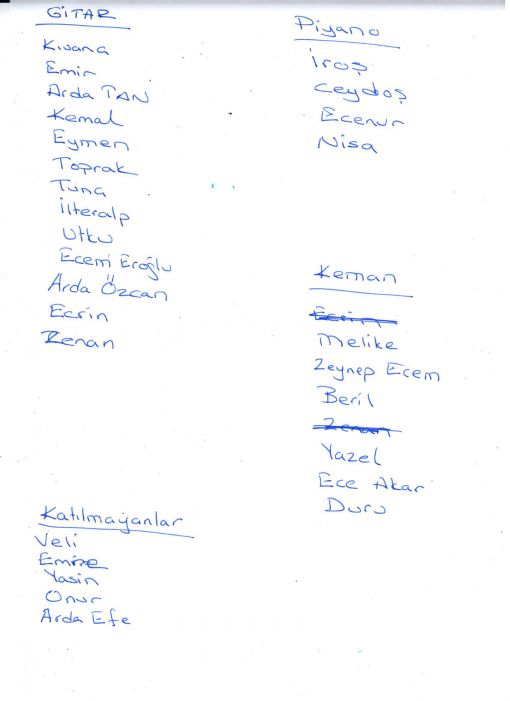 GİTAR
Kıvanç
Emir
Arda TAN
Kemal
Eymen
Toprak
Tuna
İlteralp
Utku
Ecem Eroğlu
Arda Özcan
Ecrin
Kenan
Piyano
İroş
Ceydoş
Ecenur
Nisa
Keman
Ecrin
Melike
Zeynep Ecem
Beril
Yazel
Ece Akar
Duru
Katılmayanlar
Veli
Emine
Yasin
Onur
Arda Efe